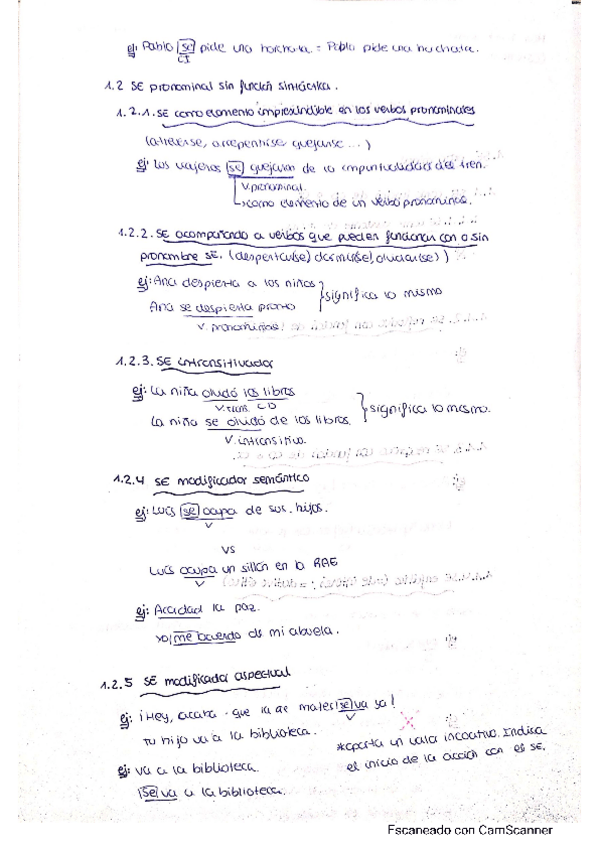 ej: Pablo se pide una horchata. = Pablo pide una horchata.
CI
1.2 SE pronominal sin función sintáctica.
1.2.1. SE como elemento imprescindible en los verbos pronominales
(atreverse, arrepentirse quejarse ...)
ej: Los viajeros se quejaron de la impuntualidad del tren.
V. pronominal.
como elemento de un verbo pronominal.
1.2.2. SE acompañando a verbos que pueden funcionar con o sin
pronombre SE. (despertar(se) dormir(se) olvidar(se))
ej: Ana despierta a los niños
significa lo mismo
Ana se despierta pronto
V. pronominal
1.2.3. SE intransitivador
ej: La niña olvidó los libros
V. trans. CD
significa lo mismo.
La niña se olvidó de los libros.
V. intransitivo.
1.2.4 SE modificador semántico
ej: Luis se ocupa de sus hijos.
V
VS
Luis ocupa un sillón en la RAE
V
ej: Acordad la paz.
Yo me acuerdo de mi abuela.
1.2.5 SE modificador aspectual
ej: ¡Hey, acaba - que la de mates se va ya!
V
Tu hijo va a la biblioteca.
*aporta un valor incoativo. Indica
el inicio de la acción con el SE.
ej: Va a la biblioteca.
Se va a la biblioteca.
Escaneado con CamScanner